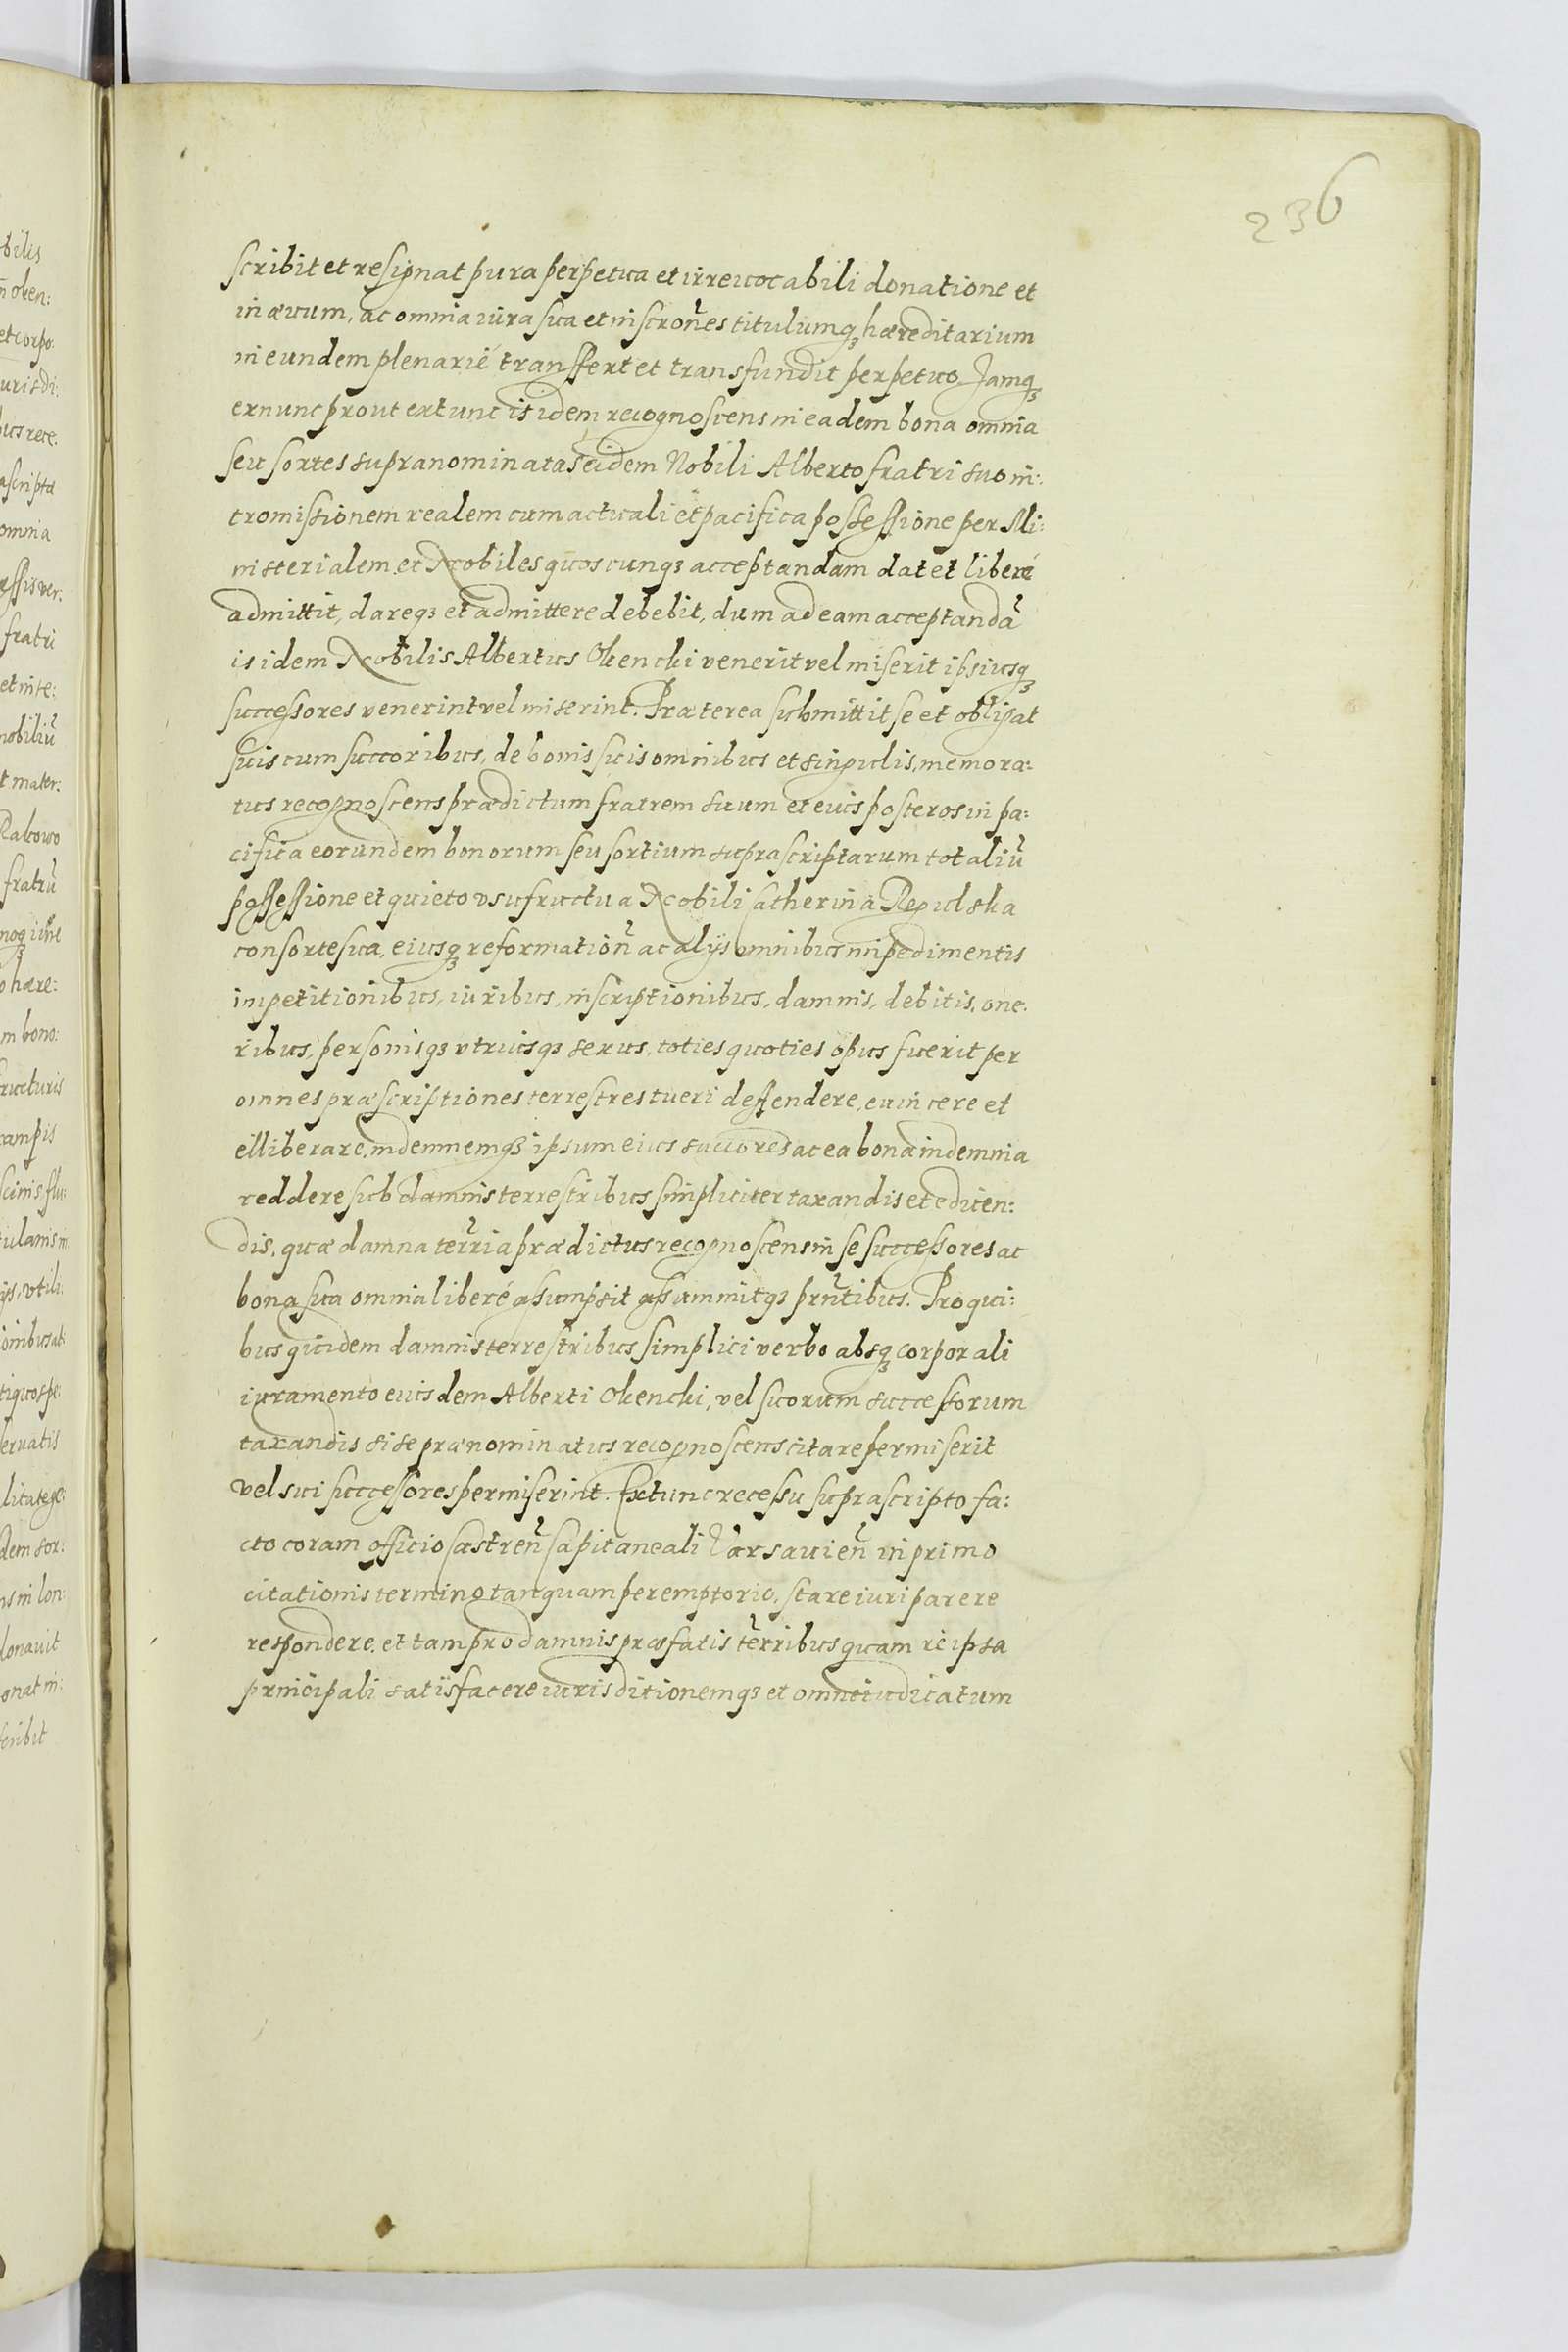 236
scribit et resignat pura perpetua et irreuocabili donatione et
in æuum, ac omnia iura sua et inscrōnes titulumq₃ hæreditarium
in eundem plenarié transffert et transfundit perpetuo. Jamq₃
exnunc prout extunc is idem recognoscens in eadem bona omnia
seu sortes supranominatas eidem Nobili Alberto fratri suo in:
tromissionem realem cum actuali et pacifica possessione per Mi:
nisterialem et Nobiles quoscunq₃ acceptandam dat et liberé
admittit, dareq₃ et admittere debebit, dum ad eam acceptandā
is idem Nobilis Albertus Okencki venerit vel miserit ipsiusq₃
successores venerint vel miserint. Præterea submittit se et obligat
suis cum succoribus, de bonis suis omnibus et singulis, memora:
tus recognoscens prædictum fratrem suum et eius posteros in pa:
cifica eorundem bonorum seu sortium suprascriptarum totaliū
possessione et quieto vsufructu a Nobili Catherina Regulska
consorte sua, eiusq₃ reformatioñ ac alijs omnibus impedimentis
impetitionibus, iuribus, inscriptionibus, damnis, debitis, one:
ribus, personisq₃ vtriusq₃ sexus, toties quoties opus fuerit per
omnes præscriptiones terrestres tueri deffendere, euincere et
elliberare, indemnemq₃ ipsum eius succores ac ea bona indemnia
reddere sub damnis terrestribus simpliciter taxandis et edicen:
dis, quæ damna terria prædictus recognoscens in se successores ac
bona sua omnia liberé assumpsit assummitq₃ prñtibus. Pro qui:
bus quidem damnis terrestribus simplici verbo absq₃ corporali
iuramento eiusdem Alberti Okencki, vel suorum successorum
taxandis si se prænominatus recognoscens citare permiserit
vel sui successores permiserint. Extunc recessu suprascripto fa:
cto coram officio Castreñ Capitaneali Varsauieñ in primo
citationis termino tanquam peremptorio, stare iuri parere
respondere, et tam pro damnis præfatis terribus quam re ipsa
principali satisfacere iurisditionemq₃ et omne iudicatum